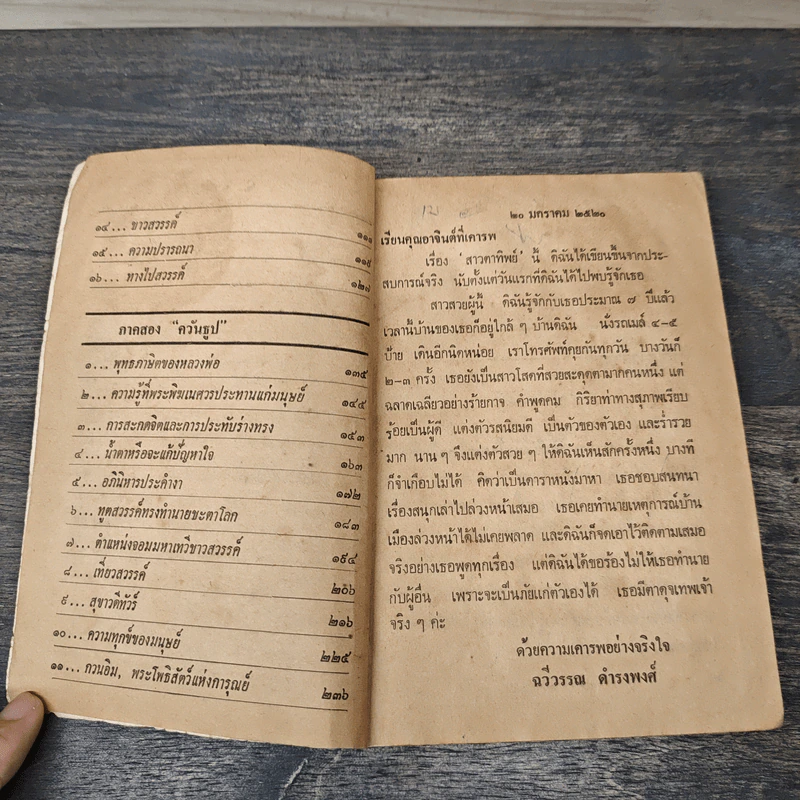 ๑๔... ชาวสวรรค์ ๑๑๑
๑๕... ความปรารถนา ๑๑๙
๑๖... ทางไปสวรรค์ ๑๒๗
ภาคสอง “ควันธูป”
๑... พุทธภาษิตของหลวงพ่อ ๑๓๕
๒... ความรู้ที่พระพิฆเนศวรประทานแก่มนุษย์ ๑๔๔
๓... การสะกดจิตและการประทับร่างทรง ๑๕๓
๔... น้ำตาหรือจะแก้ปัญหาใจ ๑๖๓
๕... อภินิหารประคำงา ๑๗๒
๖... ทูตสวรรค์ทรงทำนายชะตาโลก ๑๘๓
๗... ตำแหน่งจอมมหาเทวีชาวสวรรค์ ๑๙๔
๘... เที่ยวสวรรค์ ๒๐๖
๙... สุขาวดีทัวร์ ๒๑๖
๑๐... ความทุกข์ของมนุษย์ ๒๒๕
๑๑... กวนอิม, พระโพธิสัตว์แห่งการุณย์ ๒๓๖
๒๐ มกราคม ๒๕๒๐
เรียนคุณอาจินต์ที่เคารพ
เรื่อง ‘สาวตาทิพย์’ นี้ ดิฉันได้เขียนขึ้นจากประ-
สบการณ์จริง นับตั้งแต่วันแรกที่ดิฉันได้ไปพบรู้จักเธอ
สาวสวยผู้นี้ ดิฉันรู้จักกับเธอประมาณ ๗ ปีแล้ว
เวลานี้บ้านของเธอก็อยู่ใกล้ ๆ บ้านดิฉัน นั่งรถเมล์ ๔–๕
ป้าย เดินอีกนิดหน่อย เราโทรศัพท์คุยกันทุกวัน บางวันก็
๒–๓ ครั้ง เธอยังเป็นสาวโสดที่สวยสะดุดตามากคนหนึ่ง แต่
ฉลาดเฉลียวอย่างร้ายกาจ คำพูดคม กิริยาท่าทางสุภาพเรียบ
ร้อยเป็นผู้ดี แต่งตัวรสนิยมดี เป็นตัวของตัวเอง และร่ำรวย
มาก นาน ๆ จึงแต่งตัวสวย ๆ ให้ดิฉันเห็นสักครั้งหนึ่ง บางที
ก็จำเกือบไม่ได้ คิดว่าเป็นดาราหนังมาหา เธอชอบสนทนา
เรื่องสนุกเล่าไปล่วงหน้าเสมอ เธอเคยทำนายเหตุการณ์บ้าน
เมืองล่วงหน้าได้ไม่เคยพลาด และดิฉันก็จดเอาไว้ติดตามเสมอ
จริงอย่างเธอพูดทุกเรื่อง แต่ดิฉันได้ขอร้องไม่ให้เธอทำนาย
กับผู้อื่น เพราะจะเป็นภัยแก่ตัวเองได้ เธอมีตาดุจเทพเจ้า
จริง ๆ ค่ะ
ด้วยความเคารพอย่างจริงใจ
ฉวีวรรณ ดำรงพงศ์